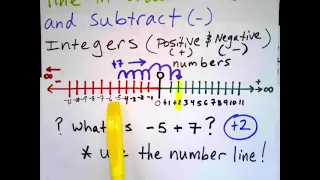 and subtract (-)
Integers (positive & negative
(+) (-)
+7 numbers
-∞ +∞
-11 -10 -9 -8 -7 -6 -5 -4 -3 -2 -1 0 +1 +2 3 4 5 6 7 8 9 10 11
? what is -5 + 7 ? +2
* use the number line!